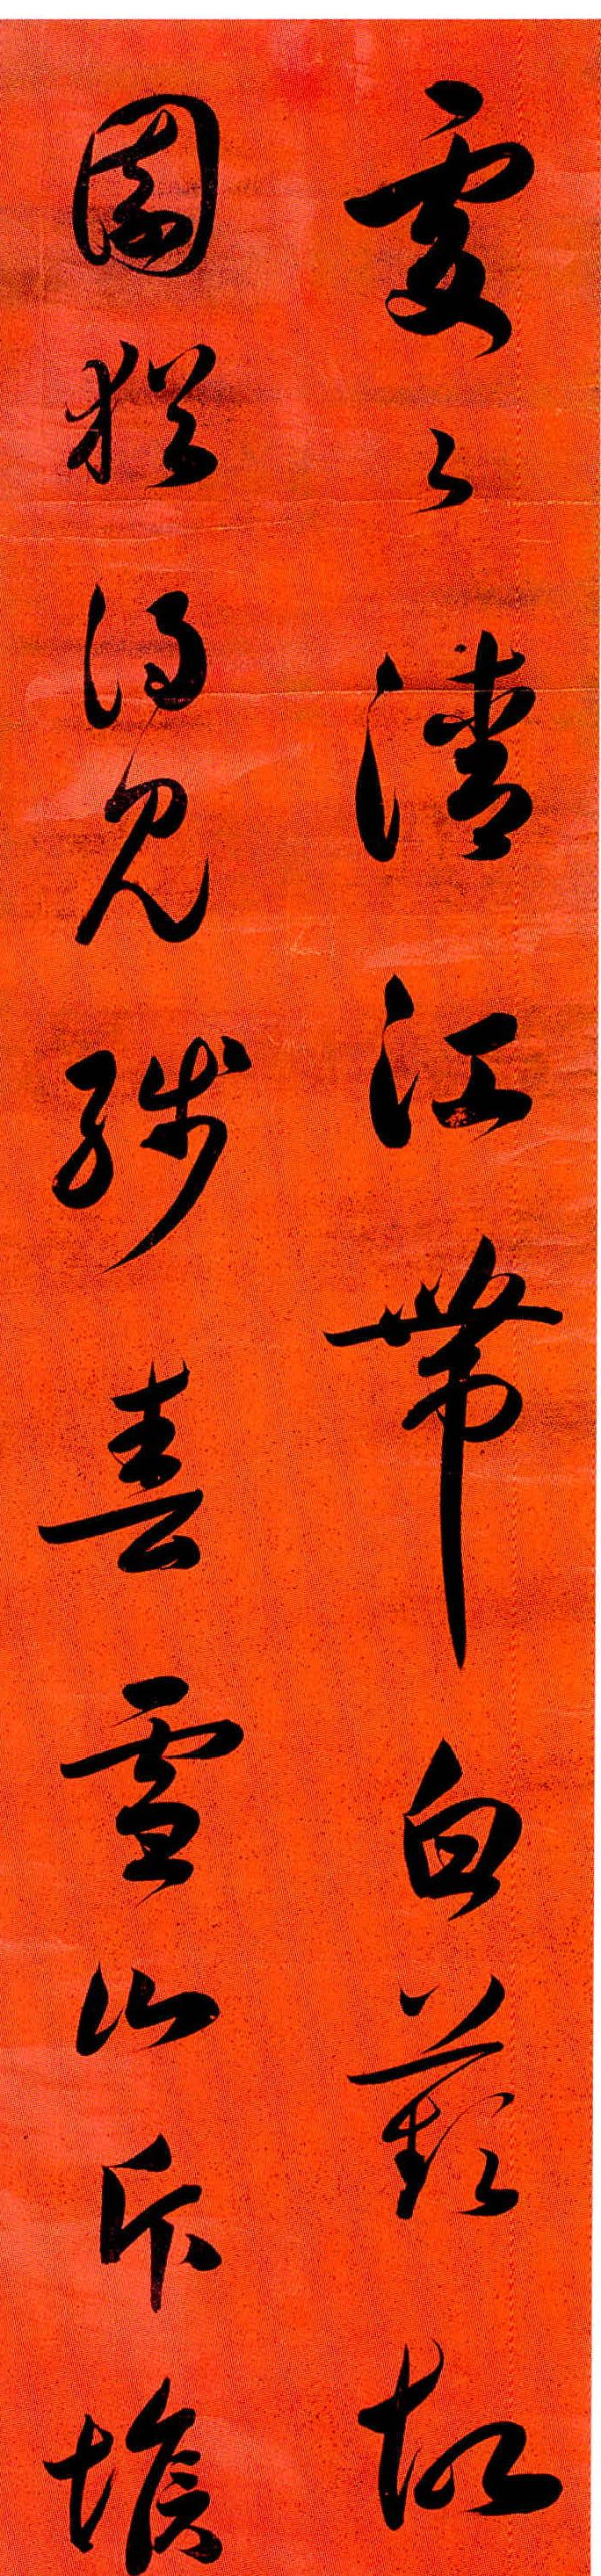 處々清江帶白蘋故
園猶得見殘春雪山斥堠